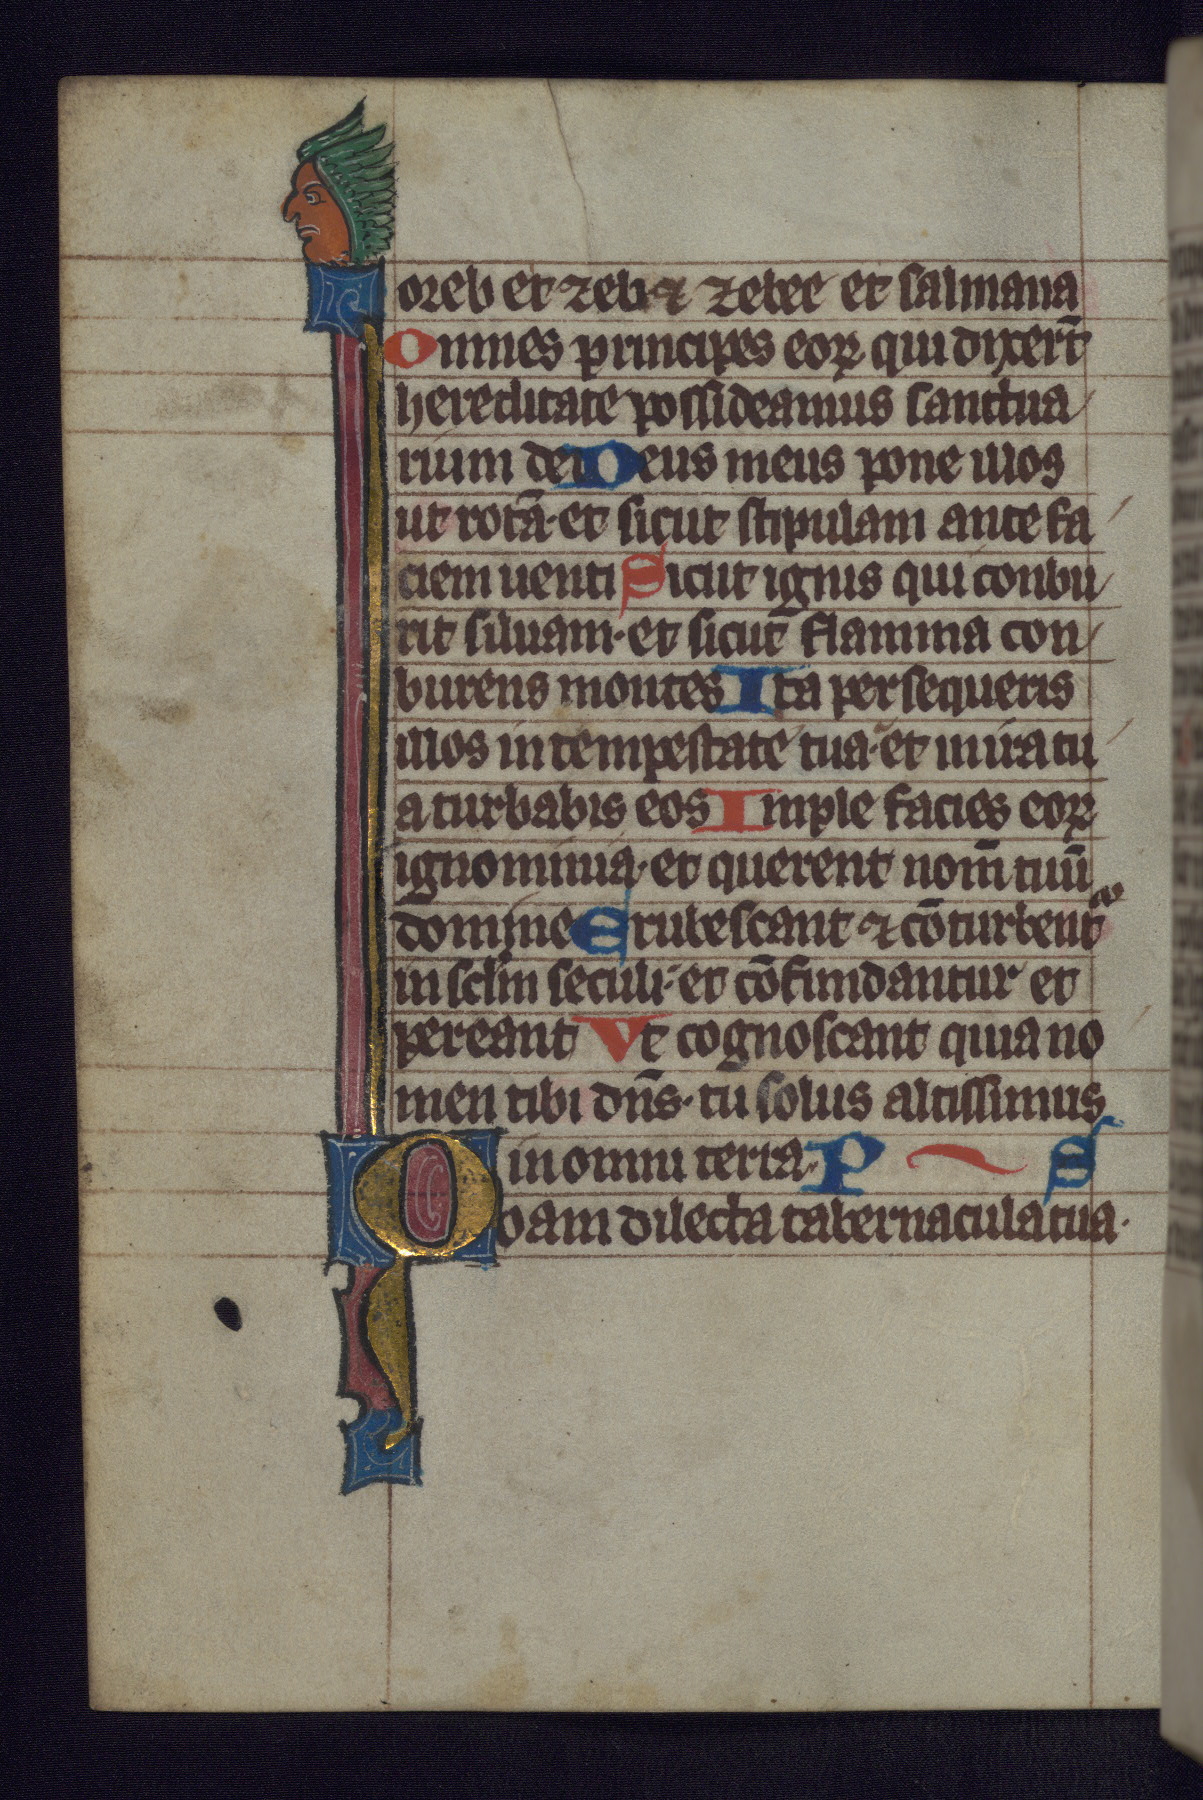 oreb et zeb ⁊ zebee et salmana
Omnes principes eoꝝ qui dixer̄t
hereditate possideamus sanctua
rium dei Deus meus pone illos
ut rotā· et sicut stipulam ante fa
ciem uenti Sicut ignis qui conbu
rit siluam· et sicut flamma con
burens montes Ita persequeris
illos in tempestate tua· et in ira tu
a turbabis eos Imple facies eoꝝ
ignominia· et querent nom̄ tuū
domine Erubescant ⁊ cōturbent̄
in sclm̄ seculi· et cōfundantur et
pereant Vt cognoscant quia no
men tibi dn̄s· tū solus altissimus
in omni terra· P S
Q
oam dilecta tabernacula tua·